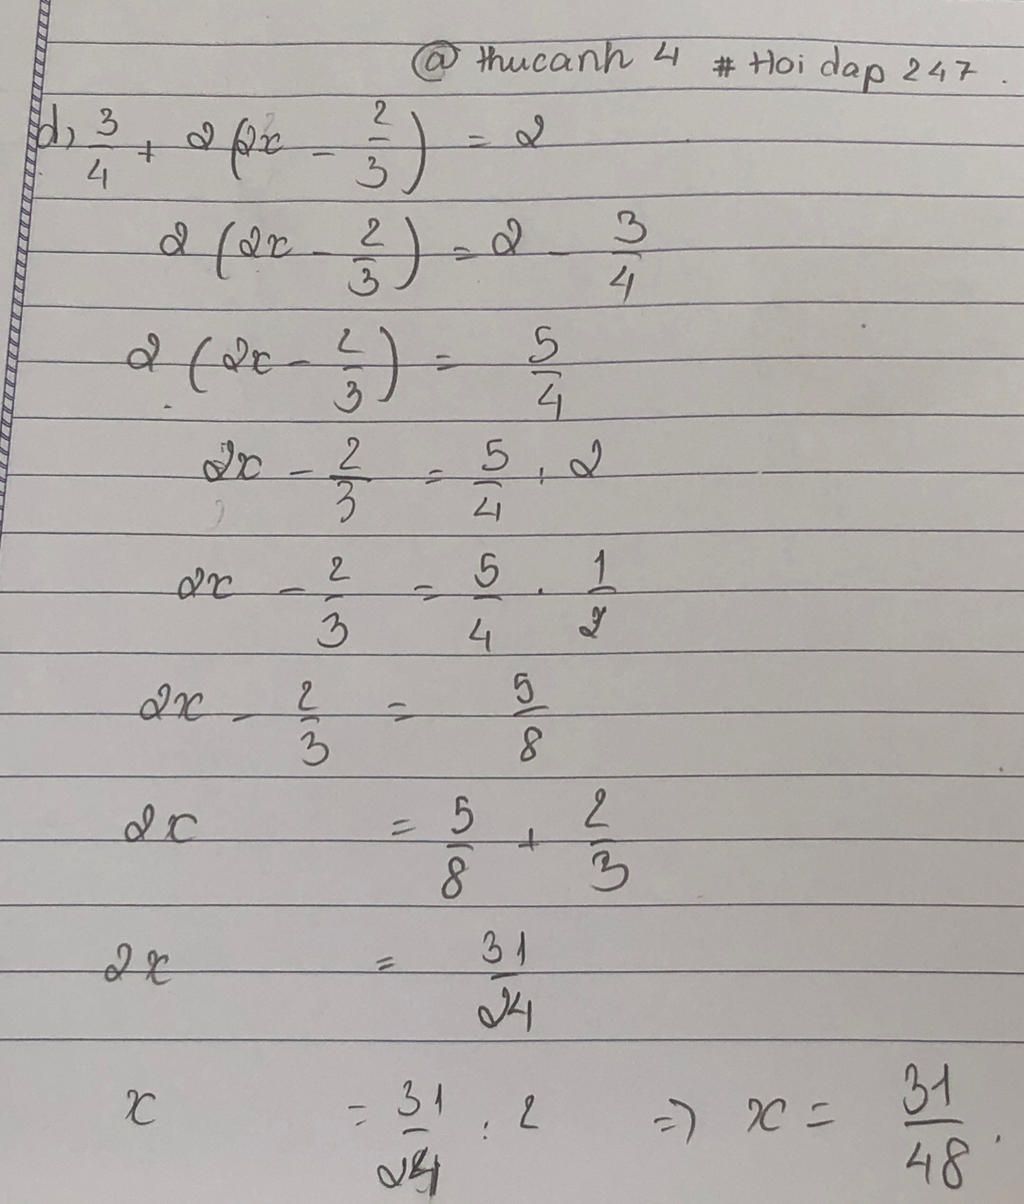 @ thucanh 4 # Hoi dap 247.
d, 3/4 + 2(2x - 2/3) = 2
2(2x - 2/3) = 2 - 3/4
2(2x - 2/3) = 5/4
2x - 2/3 = 5/4 : 2
2x - 2/3 = 5/4 . 1/2
2x - 2/3 = 5/8
2x = 5/8 + 2/3
2x = 31/24
x = 31/24 : 2 => x = 31/48.